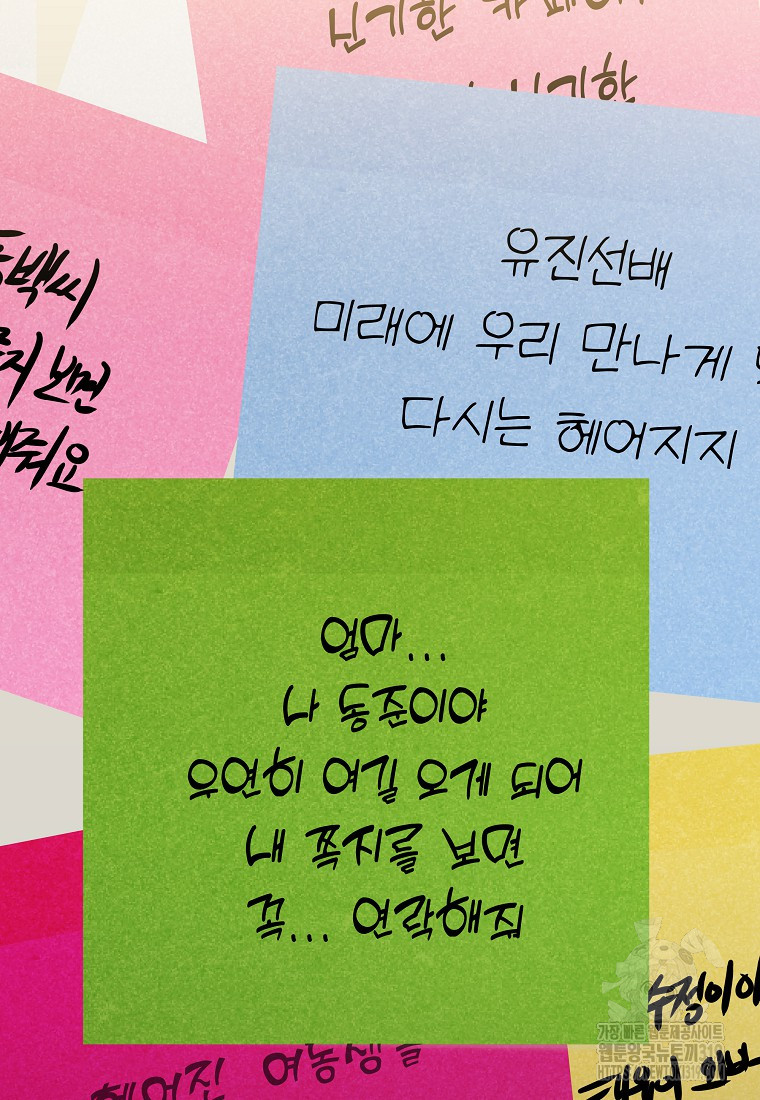 신기한
신기한
동백씨
유진선배
미래에 우리 만나게
다시는 헤어지지
쪽지 보면
해줘요
엄마...
나 동준이야
우연히 여길 오게 되어
내 쪽지를 보면
꼭... 연락해줘
수정이
헤어진 여동생을
가장 빠른 웹툰제공사이트
웹툰왕국뉴토끼310